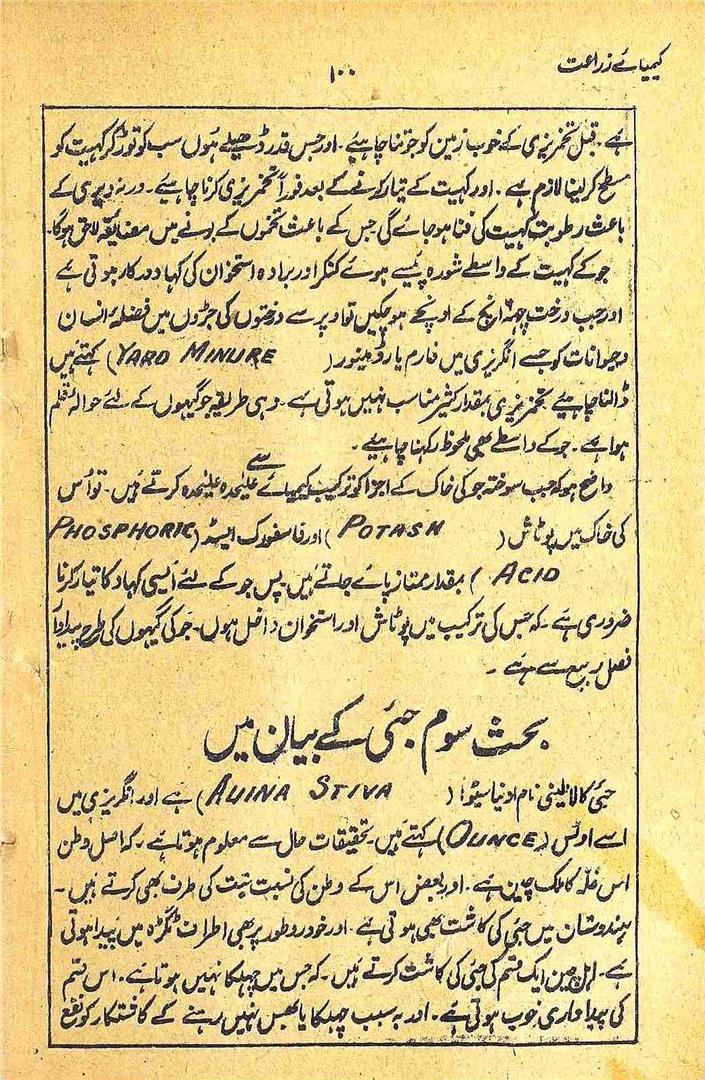 کیمیائے زراعت
۱۰۰
ہے۔ قبل تخمریزی کے خوب زمین کو جوتنا چاہیے۔ اور جس قدر ڈھیلے ہوں سب کو توڑ کر کہیت کو
مسطح کر لینا لازم ہے۔ اور کہیت کے تیار کرنے کے بعد فوراً تخمریزی کرنا چاہیے۔ ورنہ دیری کے
باعث رطوبت کہیت کی فنا ہو جائے گی جس کے باعث تخموں کے بونے میں مضائقہ لاحق ہوگا۔
جو کے کہیت کے واسطے شورہ پسے ہوئے کنکر اور برادہ استخوان کی کہاد درکار ہوتی ہے
اور جب درخت چہہ انچ کے اونچے ہو چکیں تو اوپر سے درختوں کی جڑوں میں فضلۂ انسان
وحیوانات کو جسے انگریزی میں فارم یارڈ مینور (YARD MINURE) کہتے ہیں
ڈالنا چاہیے تخمریزی بمقدار کثیر مناسب نہیں ہوتی ہے۔ وہی طریقہ جو گیہوں کے لئے حوالۂ قلم
ہوا ہے۔ جو کے واسطے بھی ملحوظ رکہنا چاہیے۔
واضح ہو کہ جب سوختہ جو کی خاک کے اجزا کو ترکیب کیمیائے سے علیٰحدہ علیٰحدہ کرتے ہیں۔ تو اُس
کی خاک میں پوٹاش (POTASH) اور فاسفورک ایسڈ (PHOSPHORIC
ACID) بمقدار ممتاز پائے جاتے ہیں۔ پس جو کے لئے ایسی کہاد کا تیار کرنا
ضروری ہے۔ کہ جس کی ترکیب میں پوٹاش اور استخوان داخل ہوں۔ جو کی گیہوں کی طرح پیداوار
فصل ربیع سے ہے۔
بحث سوم جئی کے بیان میں
جئی کا لاطینی نام اونیا سیٹوا (AUINA STIVA) ہے اور انگریزی میں
اسے اونس (OUNCE) کہتے ہیں۔ تحقیقات حال سے معلوم ہوتا ہے۔ کہ اصل وطن
اس غلّہ کا ملک چین ہے۔ اور بعض اس کے وطن کی نسبت تبت کی طرف بھی کرتے ہیں۔
ہندوستان میں جئی کی کاشت بھی ہوتی ہے۔ اور خودرو طور پر بھی اطراف میں پیدا ہوتی
ہے۔ اہل چین ایک قسم کی جئی کی کاشت کرتے ہیں۔ کہ جس میں چہلکا نہیں ہوتا ہے۔ اس قسم
کی پیداواری خوب ہوتی ہے۔ اور بہ سبب چہلکا یا بھس نہیں رہنے کے کاشتکار کو نفع